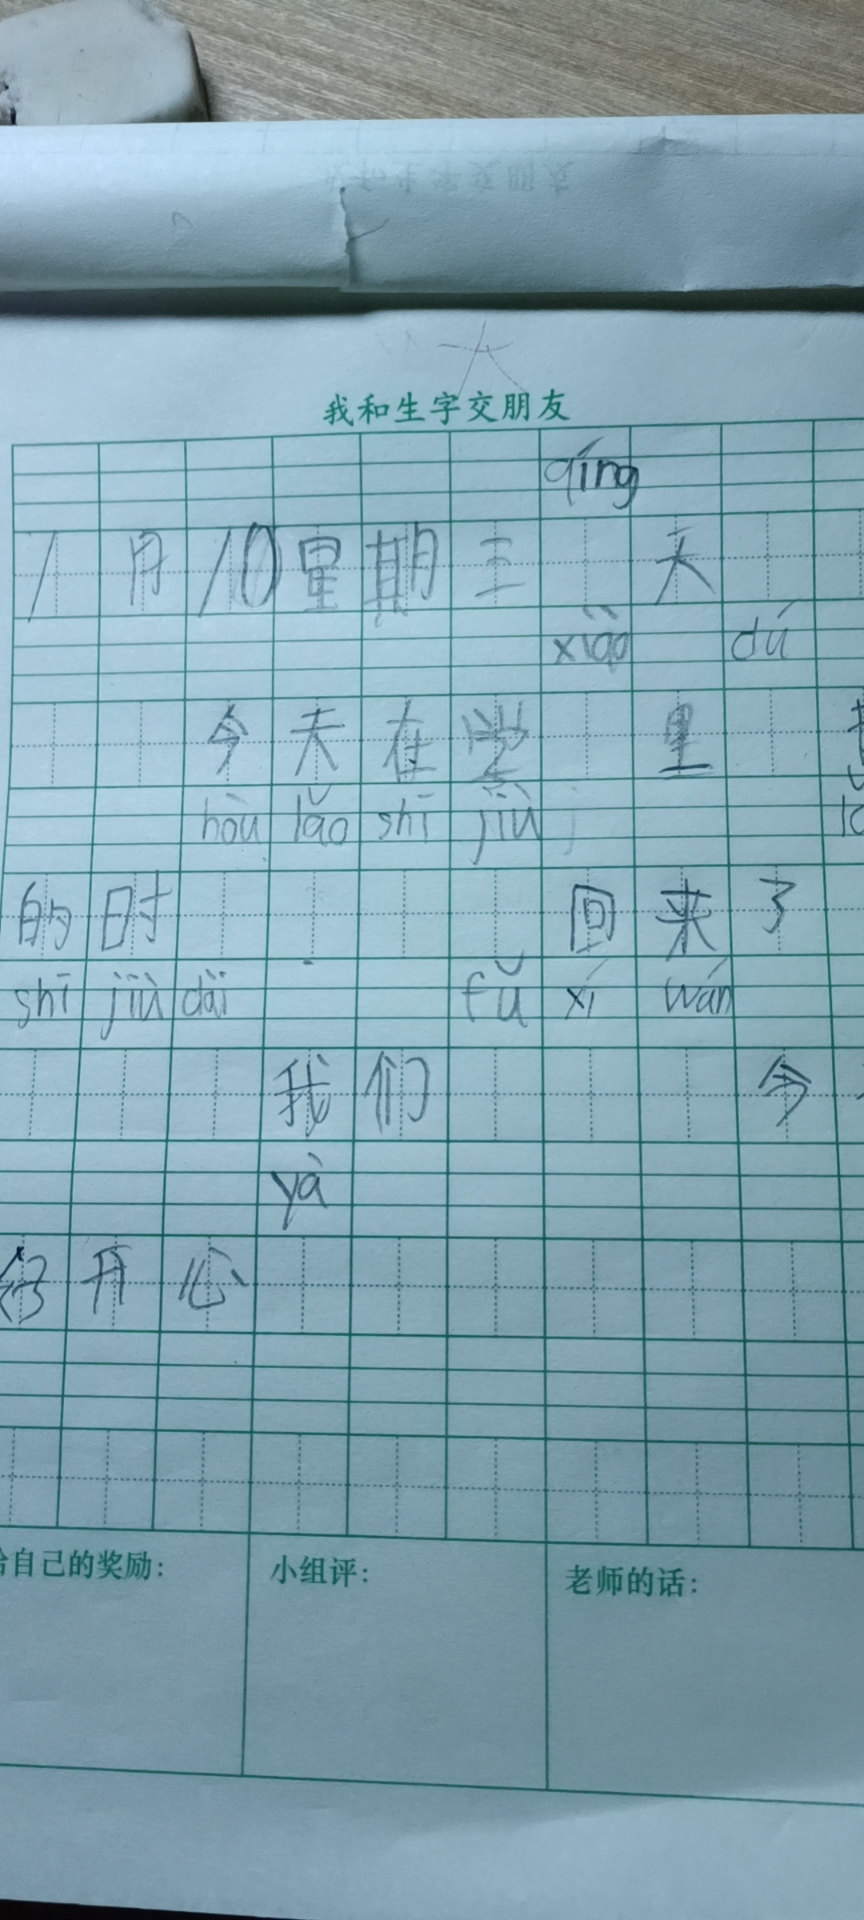 我和生字交朋友
qíng
1月10星期三 天
xiào dú
今天在学 里
hòu lǎo shī jiù
的时 回来了
shī jiù dài fǔ xí wán
我们 今
yà
好开心
给自己的奖励： 小组评： 老师的话：